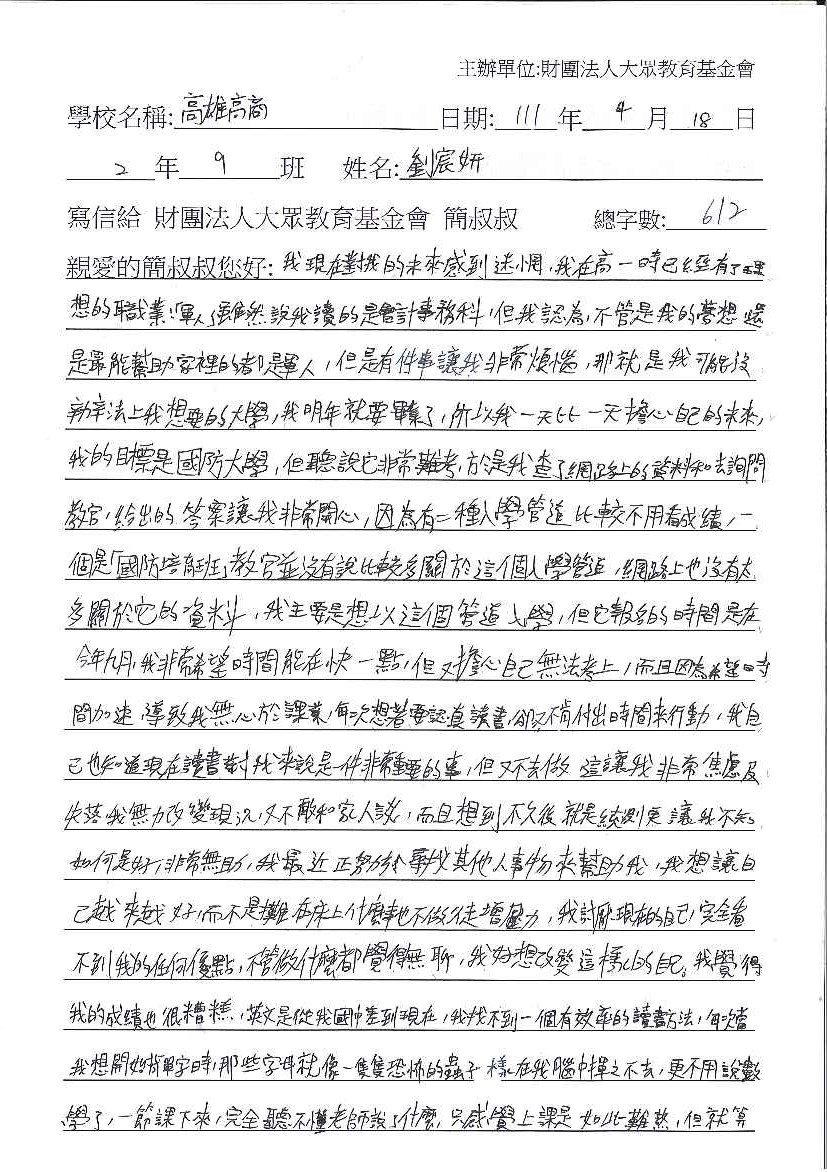 主辦單位:財團法人大眾教育基金會
學校名稱:高雄高商 日期: 111 年 4 月 18 日
2 年 9 班 姓名:劉宸妍
寫信給 財團法人大眾教育基金會 簡叔叔 總字數: 612
親愛的簡叔叔您好:我現在對我的未來感到迷惘,我在高一時已經有了理
想的職業:軍人,雖然說我讀的是會計事務科,但我認為,不管是我的夢想還
是最能幫助家裡的都是軍人,但是有件事讓我非常煩惱,那就是我可能沒
辦法上我想要的大學,我明年就要畢業了,所以我一天比一天擔心自己的未來,
我的目標是國防大學,但聽說它非常難考,於是我查了網路上的資料和去詢問
教官,給出的答案讓我非常開心,因為有二種入學管道比較不用看成績,一
個是「國防培育班」教官並沒有說比較多關於這個入學管道,網路上也沒有太
多關於它的資料,我主要是想以這個管道入學,但它報名的時間是在
今年九月,我非常希望時間能在快一點,但又擔心自己無法考上,而且因為希望時
間加速,導致我無心於課業,每次想著要認真讀書,卻又不肯付出時間來行動,我自
己也知道現在讀書對我來說是一件非常重要的事,但又不去做 這讓我非常焦慮及
失落我無力改變現況,又不敢和家人說,而且想到不久後就是統測更讓我不知
如何是好,非常無助,我最近正努力於尋找其他人事物來幫助我,我想讓自
己越來越好,而不是攤在床上什麼事也不做徒增壓力,我討厭現在的自己,完全看
不到我的任何優點,不管做什麼都覺得無聊,我好想改變這樣的自己。我覺得
我的成績也很糟糕,英文是從我國中差到現在,我找不到一個有效率的讀書方法,每次當
我想開始背單字時,那些字母就像一隻隻恐怖的蟲子 樣在我腦中揮之不去,更不用說數
學了,一節課下來,完全聽不懂老師說了什麼,只感覺上課是如此難熬,但就算